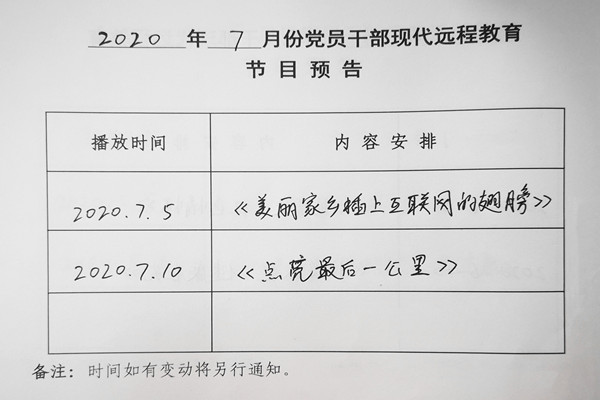 2020 年 7 月份党员干部现代远程教育
节目预告
播放时间 内容安排
2020.7.5 《美丽家乡插上互联网的翅膀》
2020.7.10 《点亮最后一公里》
备注：时间如有变动将另行通知。